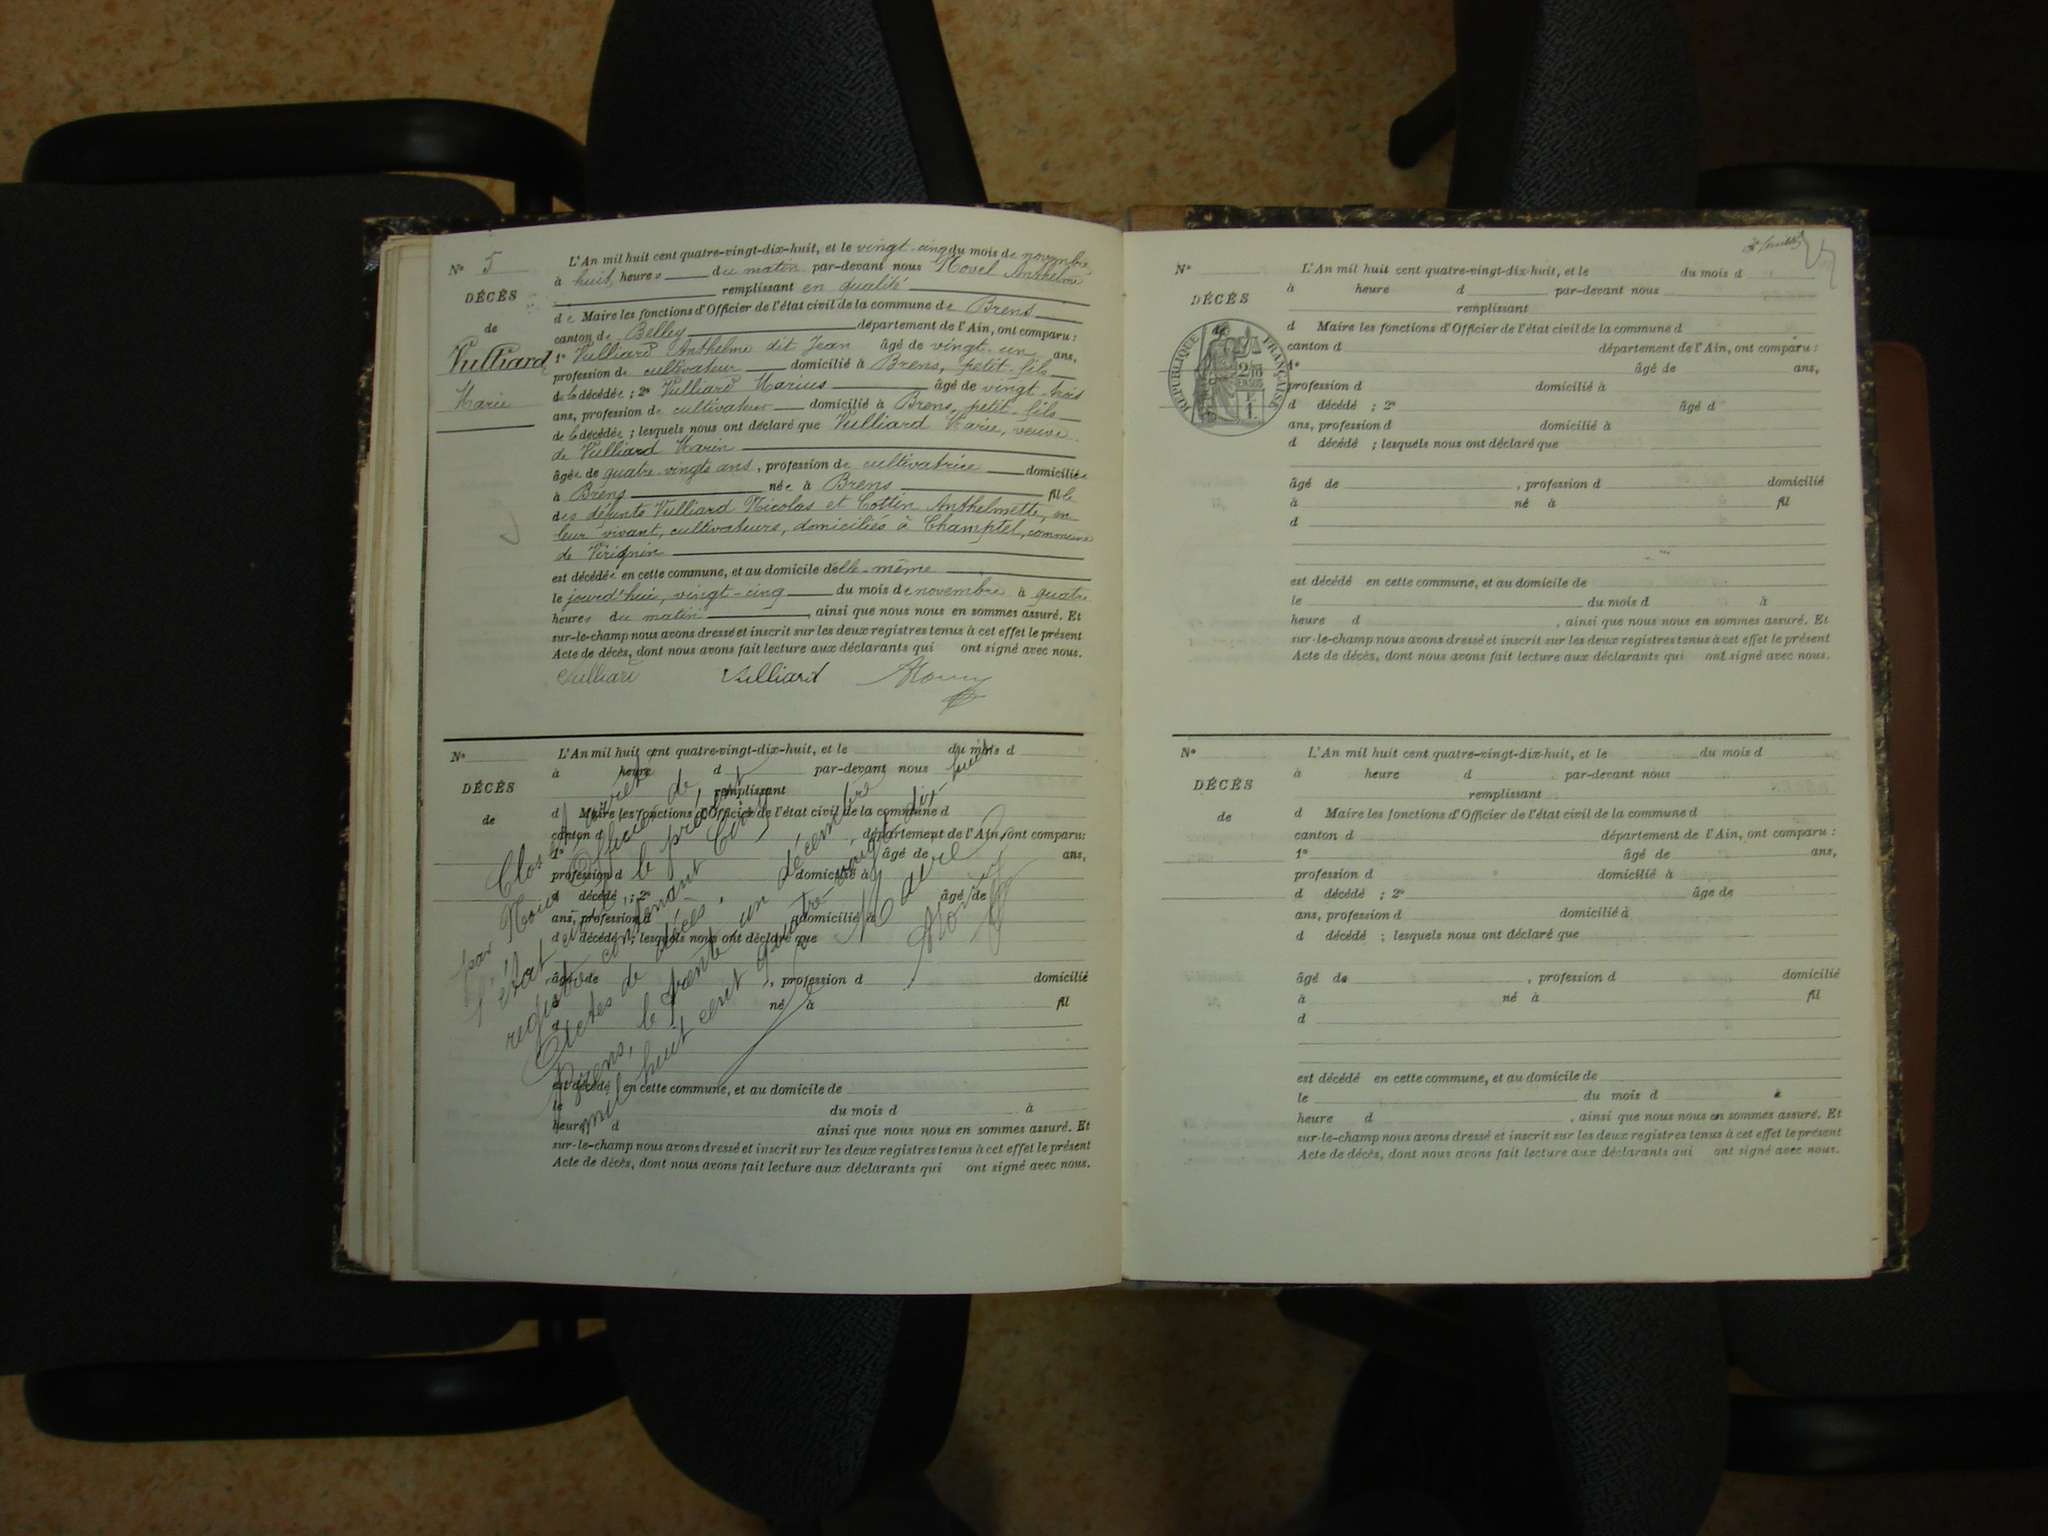 N° 5
DÉCÈS
de
Vulliard
Marie
L'An mil huit cent quatre-vingt-dix-huit, et le vingt-cinq du mois de novembre
à huit heures du matin par-devant nous Anthelme
remplissant en qualité
de Maire les fonctions d'Officier de l'état civil de la commune de Brens
canton de Belley département de l'Ain, ont comparu :
1° Vulliard Anthelme dit Jean âgé de vingt-un ans,
profession de cultivateur domicilié à Brens, petit-fils
de la décédée ; 2° Vulliard Marius âgé de vingt-trois
ans, profession de cultivateur domicilié à Brens, petit-fils
de la décédée ; lesquels nous ont déclaré que Vulliard Marie, veuve
de Vulliard Marin
âgée de quatre-vingts ans, profession de cultivatrice domiciliée
à Brens née à Brens fille
des défunts Vulliard Nicolas et Cottin Anthelmette, en
leur vivant, cultivateurs, domiciliés à Champtel, commune
de Virignin
est décédée en cette commune, et au domicile d'elle-même
le jourd'hui, vingt-cinq du mois de novembre à quatre
heures du matin, ainsi que nous nous en sommes assuré. Et
sur-le-champ nous avons dressé et inscrit sur les deux registres tenus à cet effet le présent
Acte de décès, dont nous avons fait lecture aux déclarants qui ont signé avec nous.
Vulliard Vulliard
N°
DÉCÈS
de
L'An mil huit cent quatre-vingt-dix-huit, et le du mois d
à heure d par-devant nous
remplissant
d Maire les fonctions d'Officier de l'état civil de la commune d
canton d département de l'Ain, ont comparu :
1° âgé de ans,
profession d domicilié à
d décédé ; 2° âgé de
ans, profession d domicilié à
d décédé ; lesquels nous ont déclaré que
âgé de , profession d domicilié
à né à fil
d
est décédé en cette commune, et au domicile de
le du mois d à
heure d ainsi que nous nous en sommes assuré. Et
sur-le-champ nous avons dressé et inscrit sur les deux registres tenus à cet effet le présent
Acte de décès, dont nous avons fait lecture aux déclarants qui ont signé avec nous.
Clos et arrêté
par Nous Officier de
l'état civil, le présent
registre contenant cinq
Actes de décès.
Brens, le trente un décembre
mil huit cent quatre-vingt-dix-huit
Maire
N°
DÉCÈS
de
RÉPUBLIQUE FRANÇAISE
2/10 EN SUS
L'An mil huit cent quatre-vingt-dix-huit, et le du mois d
à heure d par-devant nous
remplissant
d Maire les fonctions d'Officier de l'état civil de la commune d
canton d département de l'Ain, ont comparu :
1° âgé de ans,
profession d domicilié à
d décédé ; 2° âgé d
ans, profession d domicilié à
d décédé ; lesquels nous ont déclaré que
âgé de , profession d domicilié
à né à fil
d
est décédé en cette commune, et au domicile de
le du mois d à
heure d , ainsi que nous nous en sommes assuré. Et
sur-le-champ nous avons dressé et inscrit sur les deux registres tenus à cet effet le présent
Acte de décès, dont nous avons fait lecture aux déclarants qui ont signé avec nous.
N°
DÉCÈS
de
L'An mil huit cent quatre-vingt-dix-huit, et le du mois d
à heure d par-devant nous
remplissant
d Maire les fonctions d'Officier de l'état civil de la commune d
canton d département de l'Ain, ont comparu :
1° âgé de ans,
profession d domicilié à
d décédé ; 2° âge de
ans, profession d domicilié à
d décédé ; lesquels nous ont déclaré que
âgé de , profession d domicilié
à né à fil
d
est décédé en cette commune, et au domicile de
le du mois d à
heure d , ainsi que nous nous en sommes assuré. Et
sur-le-champ nous avons dressé et inscrit sur les deux registres tenus à cet effet le présent
Acte de décès, dont nous avons fait lecture aux déclarants qui ont signé avec nous.